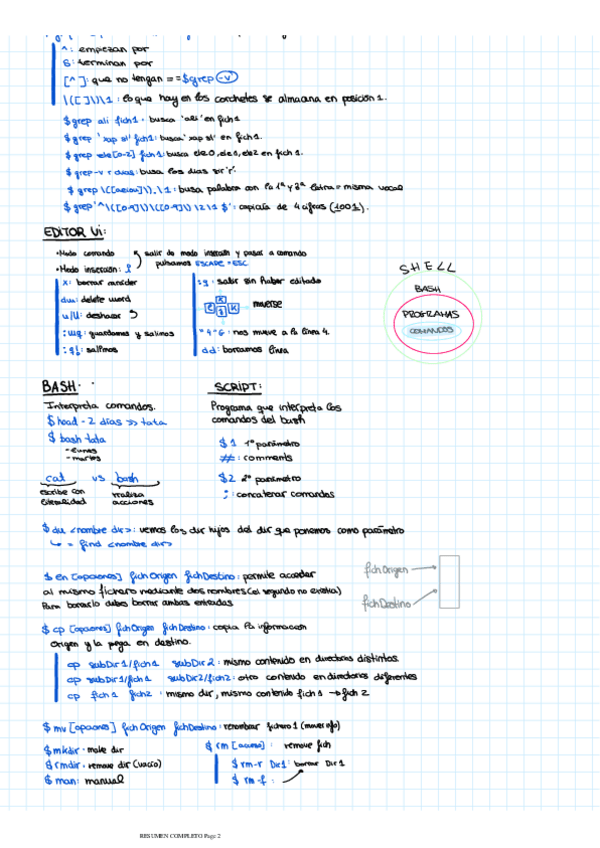 ^ : empezan por
$ : terminan por
[^ ] : que no tengan = = $grep -v
\([ ]\)\1 : lo que hay en los corchetes se almacena en posición 1.
$grep ali fich1 : busca 'ali' en fich1
$grep 'xap al' fich1: busca 'xap al' en fich1.
$grep ele[0-2] fich1: busca ele0, ele1, ele2 en fich1.
$grep -v r dias: busca los dias sin 'r'.
$grep \([aeiou]\).\1 : busca palabra con la 1ª y 3ª letra = misma vocal
$grep '^\([0-9]\)\([0-9]\) \2\1 $' : capicúa de 4 cifras (1001).
EDITOR Vi:
• Modo comando
salir de modo inserción y pasar a comando
• Modo inserción: i
pulsamos ESCAPE = ESC
x: borrar carácter
dw: delete word
u/U: deshacer
:wq: guardamos y salimos
:q!: salimos
:q : salir sin haber editado
K
J
moverse
= 4 - G : nos mueve a la línea 4.
dd: borramos línea
SHELL
BASH
PROGRAMAS
COMANDOS
BASH:
Interpreta comandos.
$head -2 días >> tata
$ bash tata
- lunes
- martes
cat vs bash
escribe con literalidad
realiza acciones
SCRIPT:
Programa que interpreta los
comandos del bash
$1 1º parámetro
#: comments
$2 2º parámetro
; : concatenar comandos
$ du <nombre dir>: vemos los dir hijos del dir que ponemos como parámetro
↳ = find <nombre dir>
$ en [opciones] fichOrigen fichDestino: permite acceder
al mismo fichero mediante dos nombres (el segundo no existía)
Para borrarlo debes borrar ambas entradas
fichOrigen
fichDestino
$ cp [opciones] fichOrigen fichDestino: copia la información
origen y la pega en destino.
cp subDir1/fich1 subDir2 : mismo contenido en directorios distintos
cp subDir1/fich1 subDir2/fich2: otro contenido en directorios diferentes
cp fich1 fich2 : mismo dir, mismo contenido fich1 → fich2
$ mv [opciones] fichOrigen fichDestino: renombrar fichero1
$mkdir : make dir
$rmdir : remove dir (vacío)
$ man: manual
$ rm : remove fich
$ rm-r Dir1: borrar Dir1
$ rm -f :
RESUMEN COMPLETO Page 2